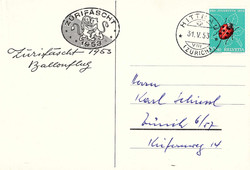 ZÜRIFÄSCHT
1953
31.V.53
ZÜRICH
HELVETIA
Zürifäscht 1953
Ballonflug
Herrn
Karl
Zürich 6/57
14